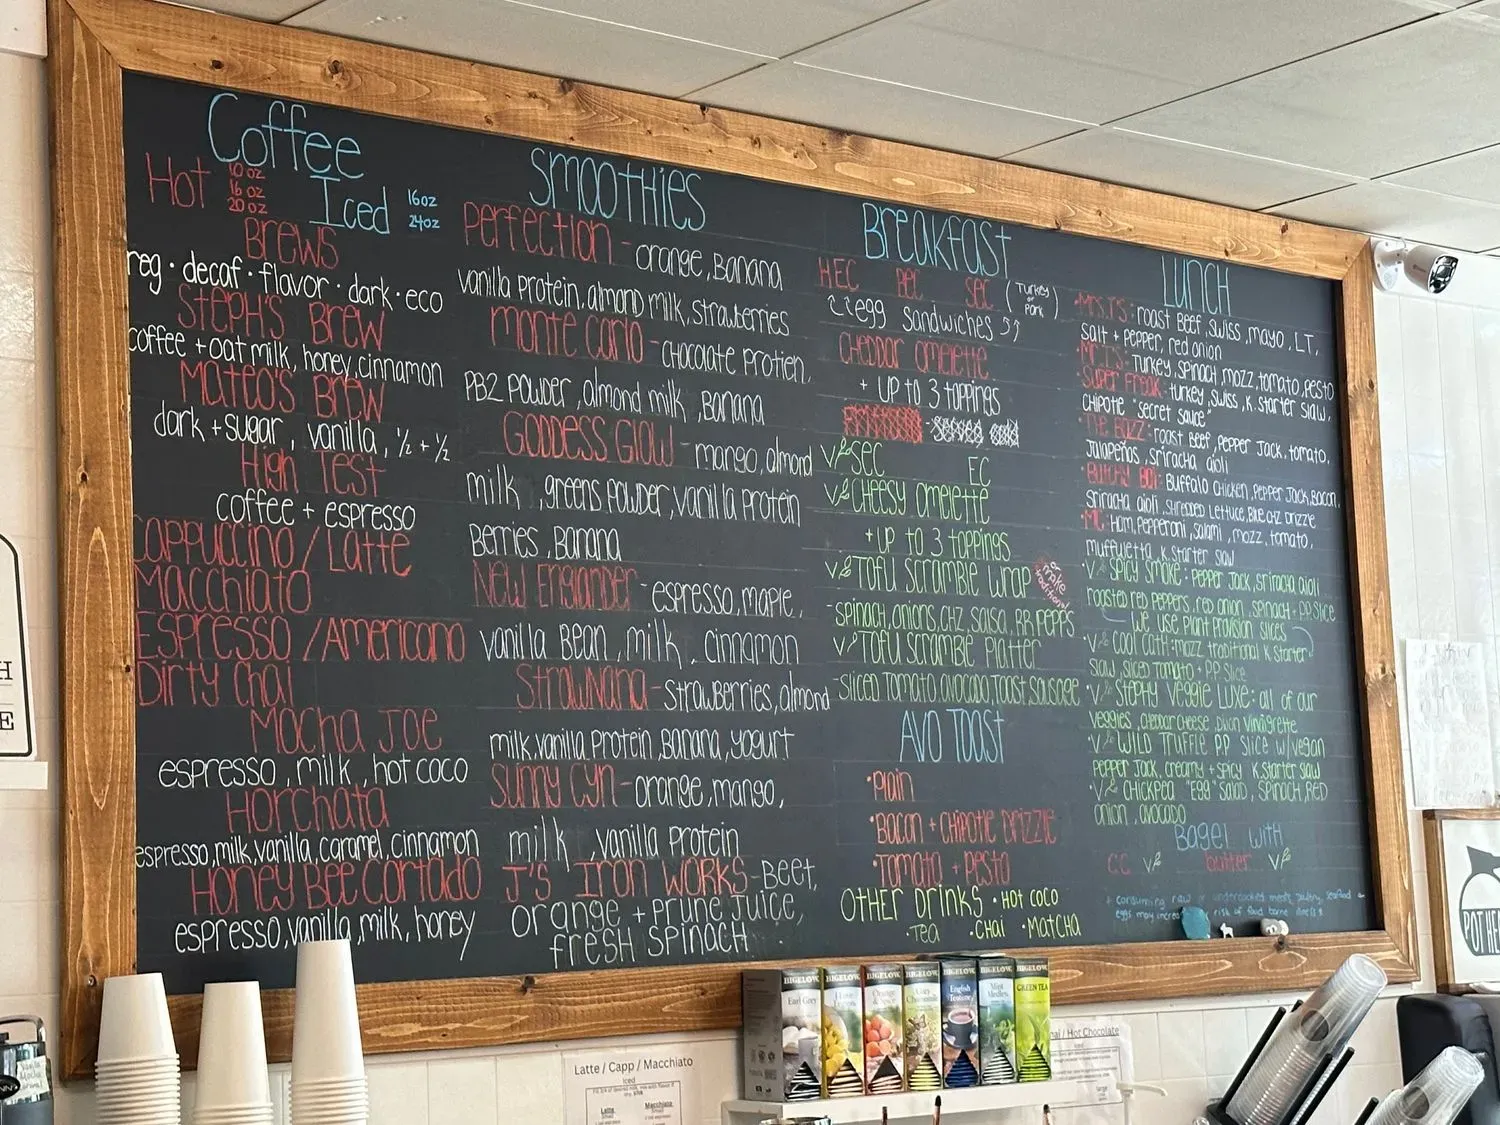 Coffee
Hot 10 oz
16 oz
20 oz
Iced 16oz
24oz
BREWS
reg · decaf · flavor · dark · eco
STEPH'S BREW
coffee + oat milk, honey, cinnamon
MATEO'S BREW
dark + sugar, vanilla, ½ + ½
High Test
coffee + espresso
Cappuccino / Latte
Macchiato
Espresso / Americano
Dirty Chai
Mocha Joe
espresso, milk, hot coco
Horchata
espresso, milk, vanilla, caramel, cinnamon
Honey Bee Cortado
espresso, vanilla, milk, honey
SMOOTHIES
PERFECTION - orange, Banana
vanilla protein, almond milk, strawberries
Monte Carlo - chocolate protien,
PB2 POWDER, almond milk, Banana
GODDESS GLOW - mango, almond
milk, greens powder, vanilla protein
Berries, Banana
NEW ENGLANDER - espresso, maple,
vanilla Bean, milk, cinnamon
StrawNana - Strawberries, almond
milk, vanilla protein, Banana, yogurt
Sunny Cyn - orange, mango,
milk, vanilla protein
J'S IRON WORKS - Beet,
orange + prune juice,
fresh spinach
Breakfast
HEC BEC SEC (Turkey
or
Pork)
egg sandwiches
CHEDDAR OMELETTE
+ UP to 3 toppings
V SEC EC
V CHEESY OMELETTE
+ UP to 3 toppings
V TOFU SCRAMBLE WRAP
or
make
traditional
- spinach, onions, CHZ, salsa, RR PEPPS
V TOFU SCRAMBLE Platter
- sliced tomato, avocado, toast, sausage
AVO TOAST
· Plain
· Bacon + CHIPOTLE DRIZZLE
· Tomato + Pesto
OTHER DRINKS · HOT COCO
· TEA · CHAI · MATCHA
LUNCH
· MRS. T'S: roast Beef, swiss, mayo, LT,
salt + pepper, red onion
· Mr. T'S: Turkey, spinach, mozz, tomato, pesto
· Super Freak: turkey, swiss, K. Starter slaw,
CHIPOTLE "secret sauce"
· The Bozz: roast Beef, pepper Jack, tomato,
Jalapeños, sriracha aioli
· Butchy Boi: Buffalo Chicken, Pepper Jack, Bacon,
Sriracha aioli, shredded Lettuce, Blue CHZ Drizzle
MC: Ham, Pepperoni, Salami, mozz, tomato,
muffuletta, K. Starter slaw
· V SPICY SMOKE: Pepper Jack, sriracha aioli
roasted red peppers, red onion, spinach + P.P. Slice
We use Plant Provision slices
· V COOL CATH: mozz, traditional K Starter
Slaw, sliced Tomato + P.P. Slice
· V STEPHY VEGGIE LUXE: all of our
veggies, cheddar cheese, Dijon Vinaigrette
· V WILD TRUFFLE P.P. Slice w/ vegan
Pepper Jack, creamy + spicy K. Starter slaw
· V CHICKPEA "EGG" Salad, spinach, red
onion, avocado
Bagel with
CC V butter V
* consuming raw or undercooked meats, poultry, seafood or
eggs may increase risk of food borne illness *
H
E
POT HE
BIGELOW
Earl Grey
BIGELOW
BIGELOW
Orange
BIGELOW
Cozy
Chamomile
BIGELOW
English
Teatime
BIGELOW
Mint
Medley
BIGELOW
GREEN TEA
Latte / Capp / Macchiato
Iced
Latte
Macchiato
hai / Hot Chocolate